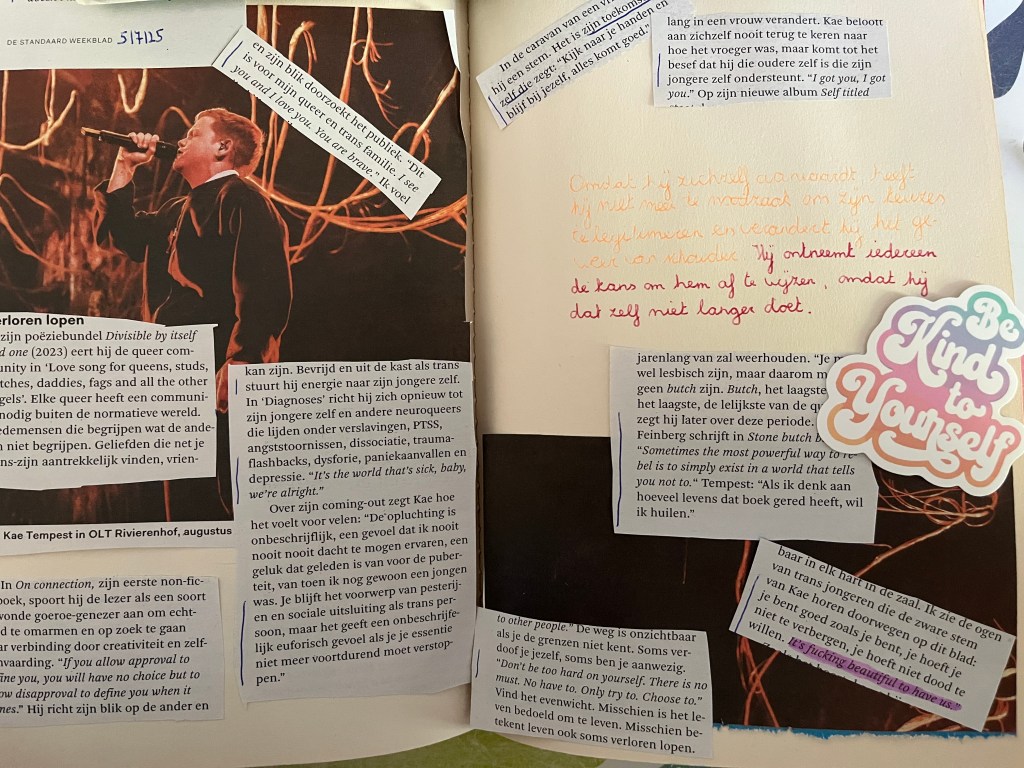 DE STANDAARD WEEKBLAD 5/7/25
en zijn blik doorzoekt het publiek. "Dit
is voor mijn queer en trans familie. I see
you and I love you. You are brave." Ik voel
erloren lopen
zijn poëziebundel Divisible by itself
d one (2023) eert hij de queer com-
unity in 'Love song for queens, studs,
tches, daddies, fags and all the other
gels'. Elke queer heeft een communi-
nodig buiten de normatieve wereld.
edemensen die begrijpen wat de ande-
n niet begrijpen. Geliefden die net je
ns-zijn aantrekkelijk vinden, vrien-
Kae Tempest in OLT Rivierenhof, augustus
In On connection, zijn eerste non-fic-
oek, spoort hij de lezer als een soort
wonde goeroe-genezer aan om echt-
d te omarmen en op zoek te gaan
ar verbinding door creativiteit en zelf-
nvaarding. "If you allow approval to
fine you, you will have no choice but to
ow disapproval to define you when it
nes." Hij richt zijn blik op de ander en
kan zijn. Bevrijd en uit de kast als trans
stuurt hij energie naar zijn jongere zelf.
In 'Diagnoses' richt hij zich opnieuw tot
zijn jongere zelf en andere neuroqueers
die lijden onder verslavingen, PTSS,
angststoornissen, dissociatie, trauma-
flashbacks, dysforie, paniekaanvallen en
depressie. "It's the world that's sick, baby,
we're alright."
Over zijn coming-out zegt Kae hoe
het voelt voor velen: "De opluchting is
onbeschrijflijk, een gevoel dat ik nooit
nooit nooit dacht te mogen ervaren, een
geluk dat geleden is van voor de puber-
teit, van toen ik nog gewoon een jongen
was. Je blijft het voorwerp van pesterij-
en en sociale uitsluiting als trans per-
soon, maar het geeft een onbeschrijfe-
lijk euforisch gevoel als je je essentie
niet meer voortdurend moet verstop-
pen."
In de caravan van een
hij een stem. Het is zijn toekoms
zelf die zegt: "Kijk naar je handen en
blijf bij jezelf, alles komt goed."
lang in een vrouw verandert. Kae belooft
aan zichzelf nooit terug te keren naar
hoe het vroeger was, maar komt tot het
besef dat hij die oudere zelf is die zijn
jongere zelf ondersteunt. "I got you, I got
you." Op zijn nieuwe album Self titled
Omdat hij zichzelf aanvaardt, heeft
hij niet meer te noodzaak om zijn keuzes
te legitimeren en verandert hij het ge-
weer van schouder. Hij ontneemt iedereen
de kans om hem af te wijzen, omdat hij
dat zelf niet langer doet.
Be
Kind
to
Yourself
jarenlang van zal weerhouden. "Je m
wel lesbisch zijn, maar daarom m
geen butch zijn. Butch, het laagste
het laagste, de lelijkste van de q
zegt hij later over deze periode.
Feinberg schrijft in Stone butch b
"Sometimes the most powerful way to re-
bel is to simply exist in a world that tells
you not to." Tempest: "Als ik denk aan
hoeveel levens dat boek gered heeft, wil
ik huilen."
to other people." De weg is onzichtbaar
als je de grenzen niet kent. Soms ver-
doof je jezelf, soms ben je aanwezig.
"Don't be too hard on yourself. There is no
must. No have to. Only try to. Choose to."
Vind het evenwicht. Misschien is het le-
ven bedoeld om te leven. Misschien be-
tekent leven ook soms verloren lopen.
baar in elk hart in de zaal. Ik zie de ogen
van trans jongeren die de zware stem
van Kae horen doorwegen op dit blad:
je bent goed zoals je bent, je hoeft je
niet te verbergen, je hoeft niet dood te
willen. "It's fucking beautiful to have us."